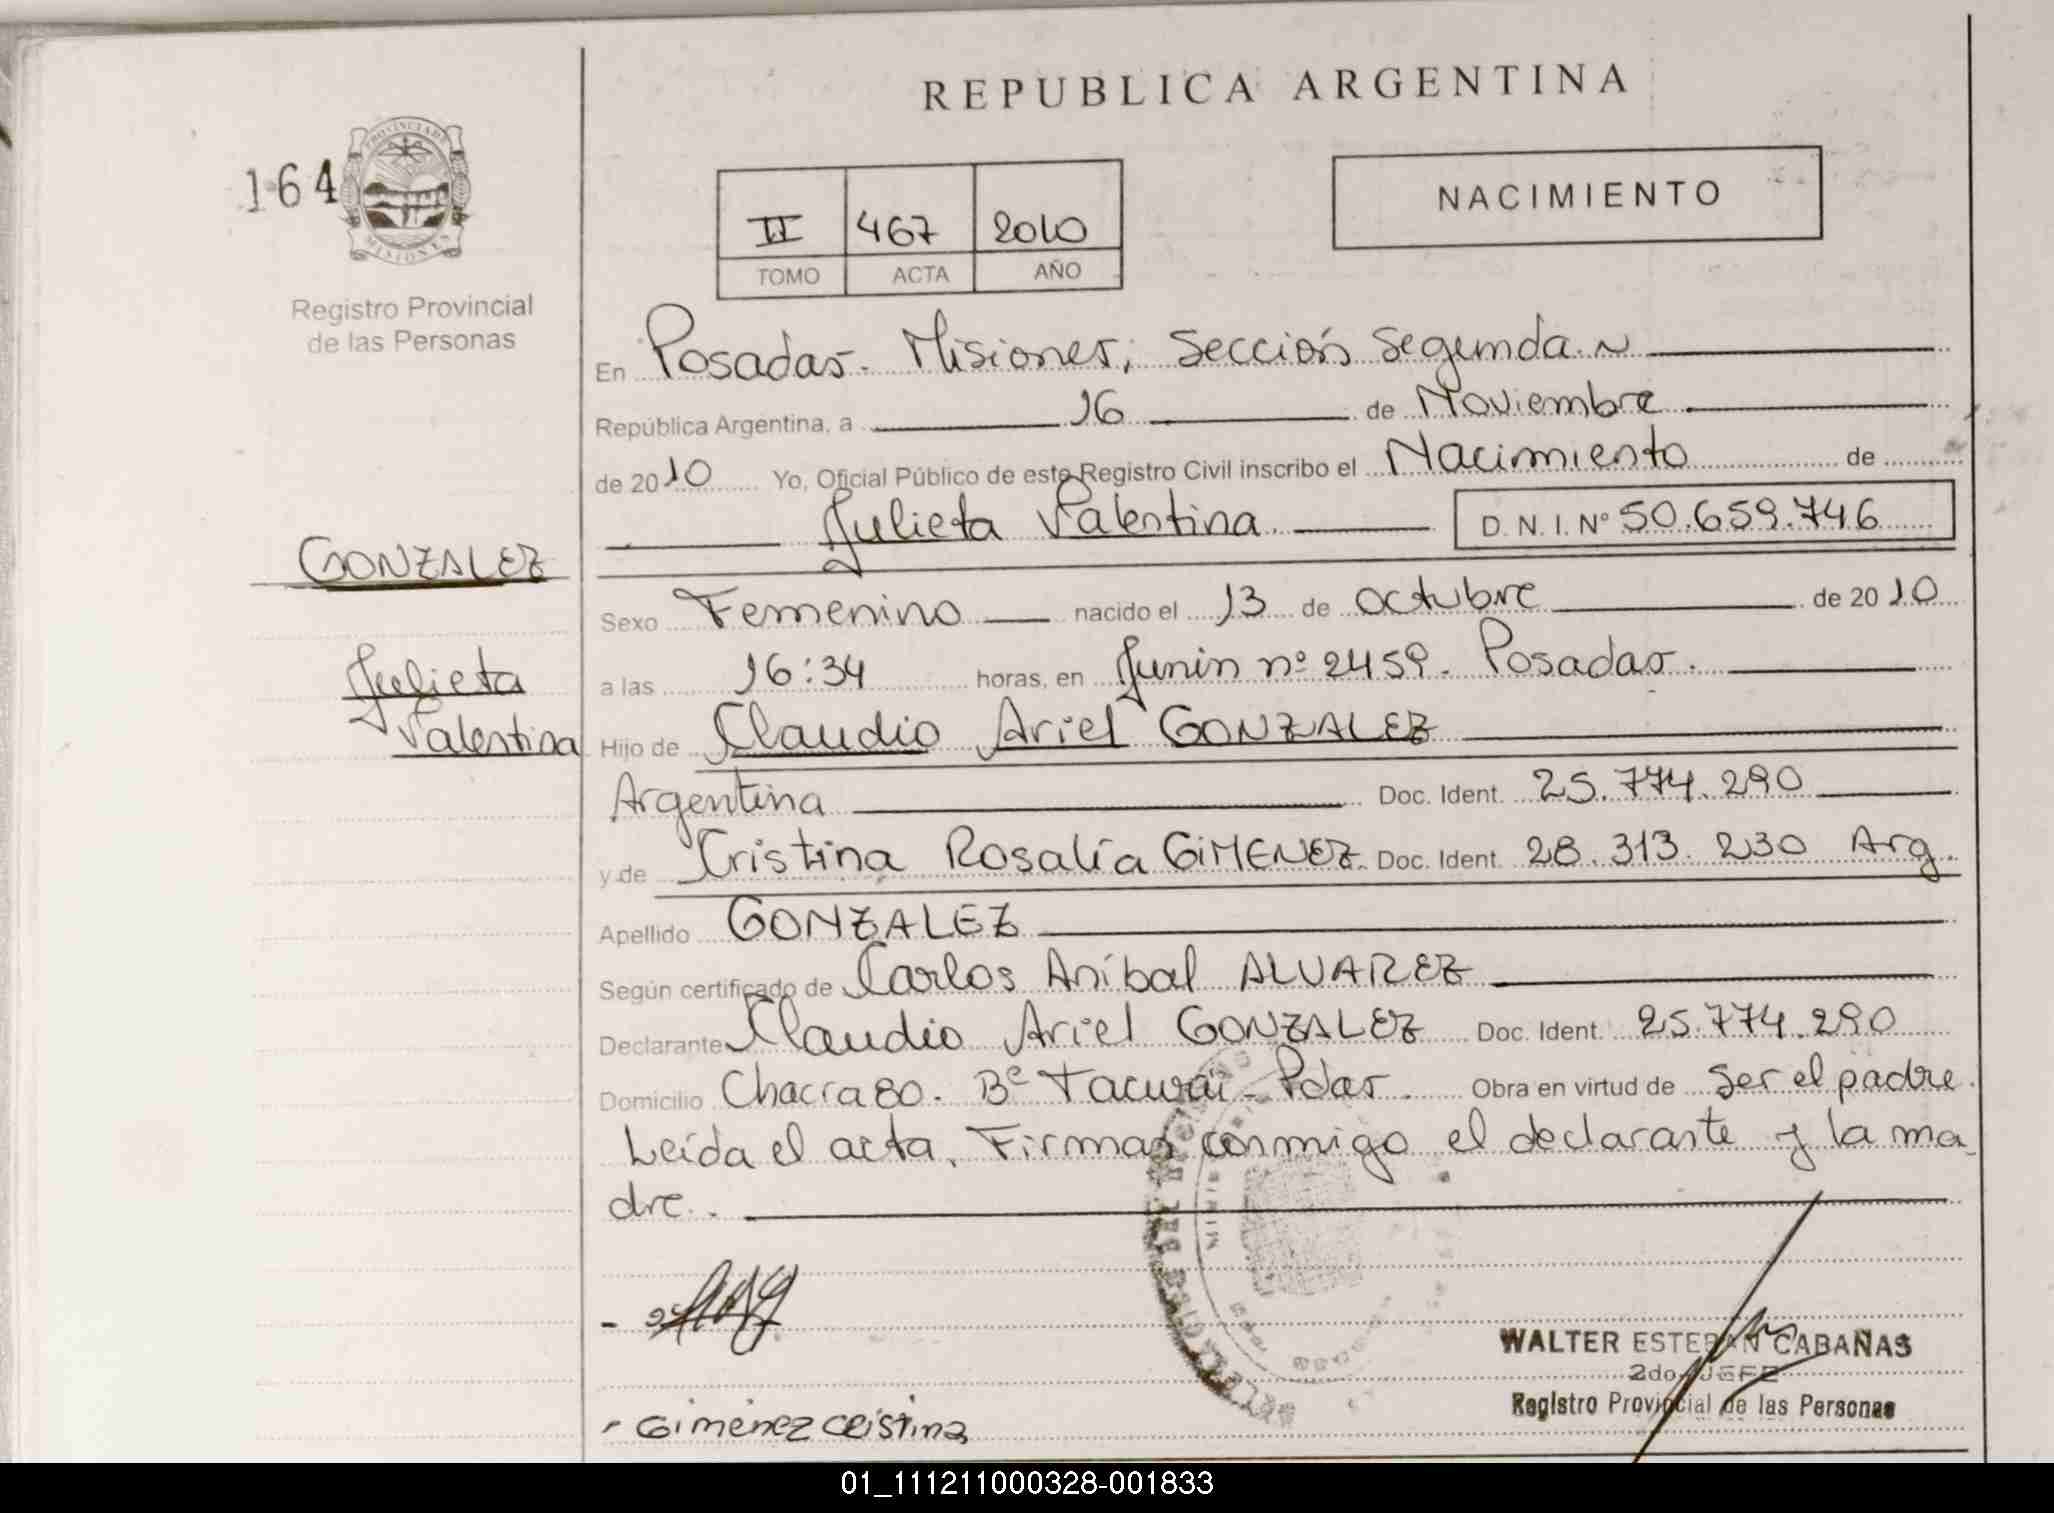 REPUBLICA ARGENTINA
164
PROVINCIA DE
MISIONES
Registro Provincial
de las Personas
II 467 2010
TOMO ACTA AÑO
NACIMIENTO
En Posadas. Misiones, Sección Segunda.
República Argentina, a 16 de Noviembre
de 2010 Yo, Oficial Público de este Registro Civil inscribo el Nacimiento de
Julieta Valentina D.N.I. Nº 50.659.746
GONZALEZ
Julieta
Valentina
Sexo Femenino nacido el 13 de octubre de 2010
a las 16:34 horas, en Junin nº 2459. Posadas.
Hijo de Claudio Ariel GONZALEZ
Argentina Doc. Ident. 25.774.290
y de Cristina Rosalía GIMENEZ. Doc. Ident. 28.313.230 Arg.
Apellido GONZALEZ
Según certificado de Carlos Aníbal ALVAREZ
Declarante Claudio Ariel GONZALEZ Doc. Ident. 25.774.290
Domicilio Chacra 80. Bº Tacurú - Pdas. Obra en virtud de ser el padre.
Leída el acta, Firman conmigo el declarante y la ma_
dre.
WALTER ESTEBAN CABAÑAS
2do. JEFE
Registro Provincial de las Personas
- Gimenez Cristina
01_111211000328-001833